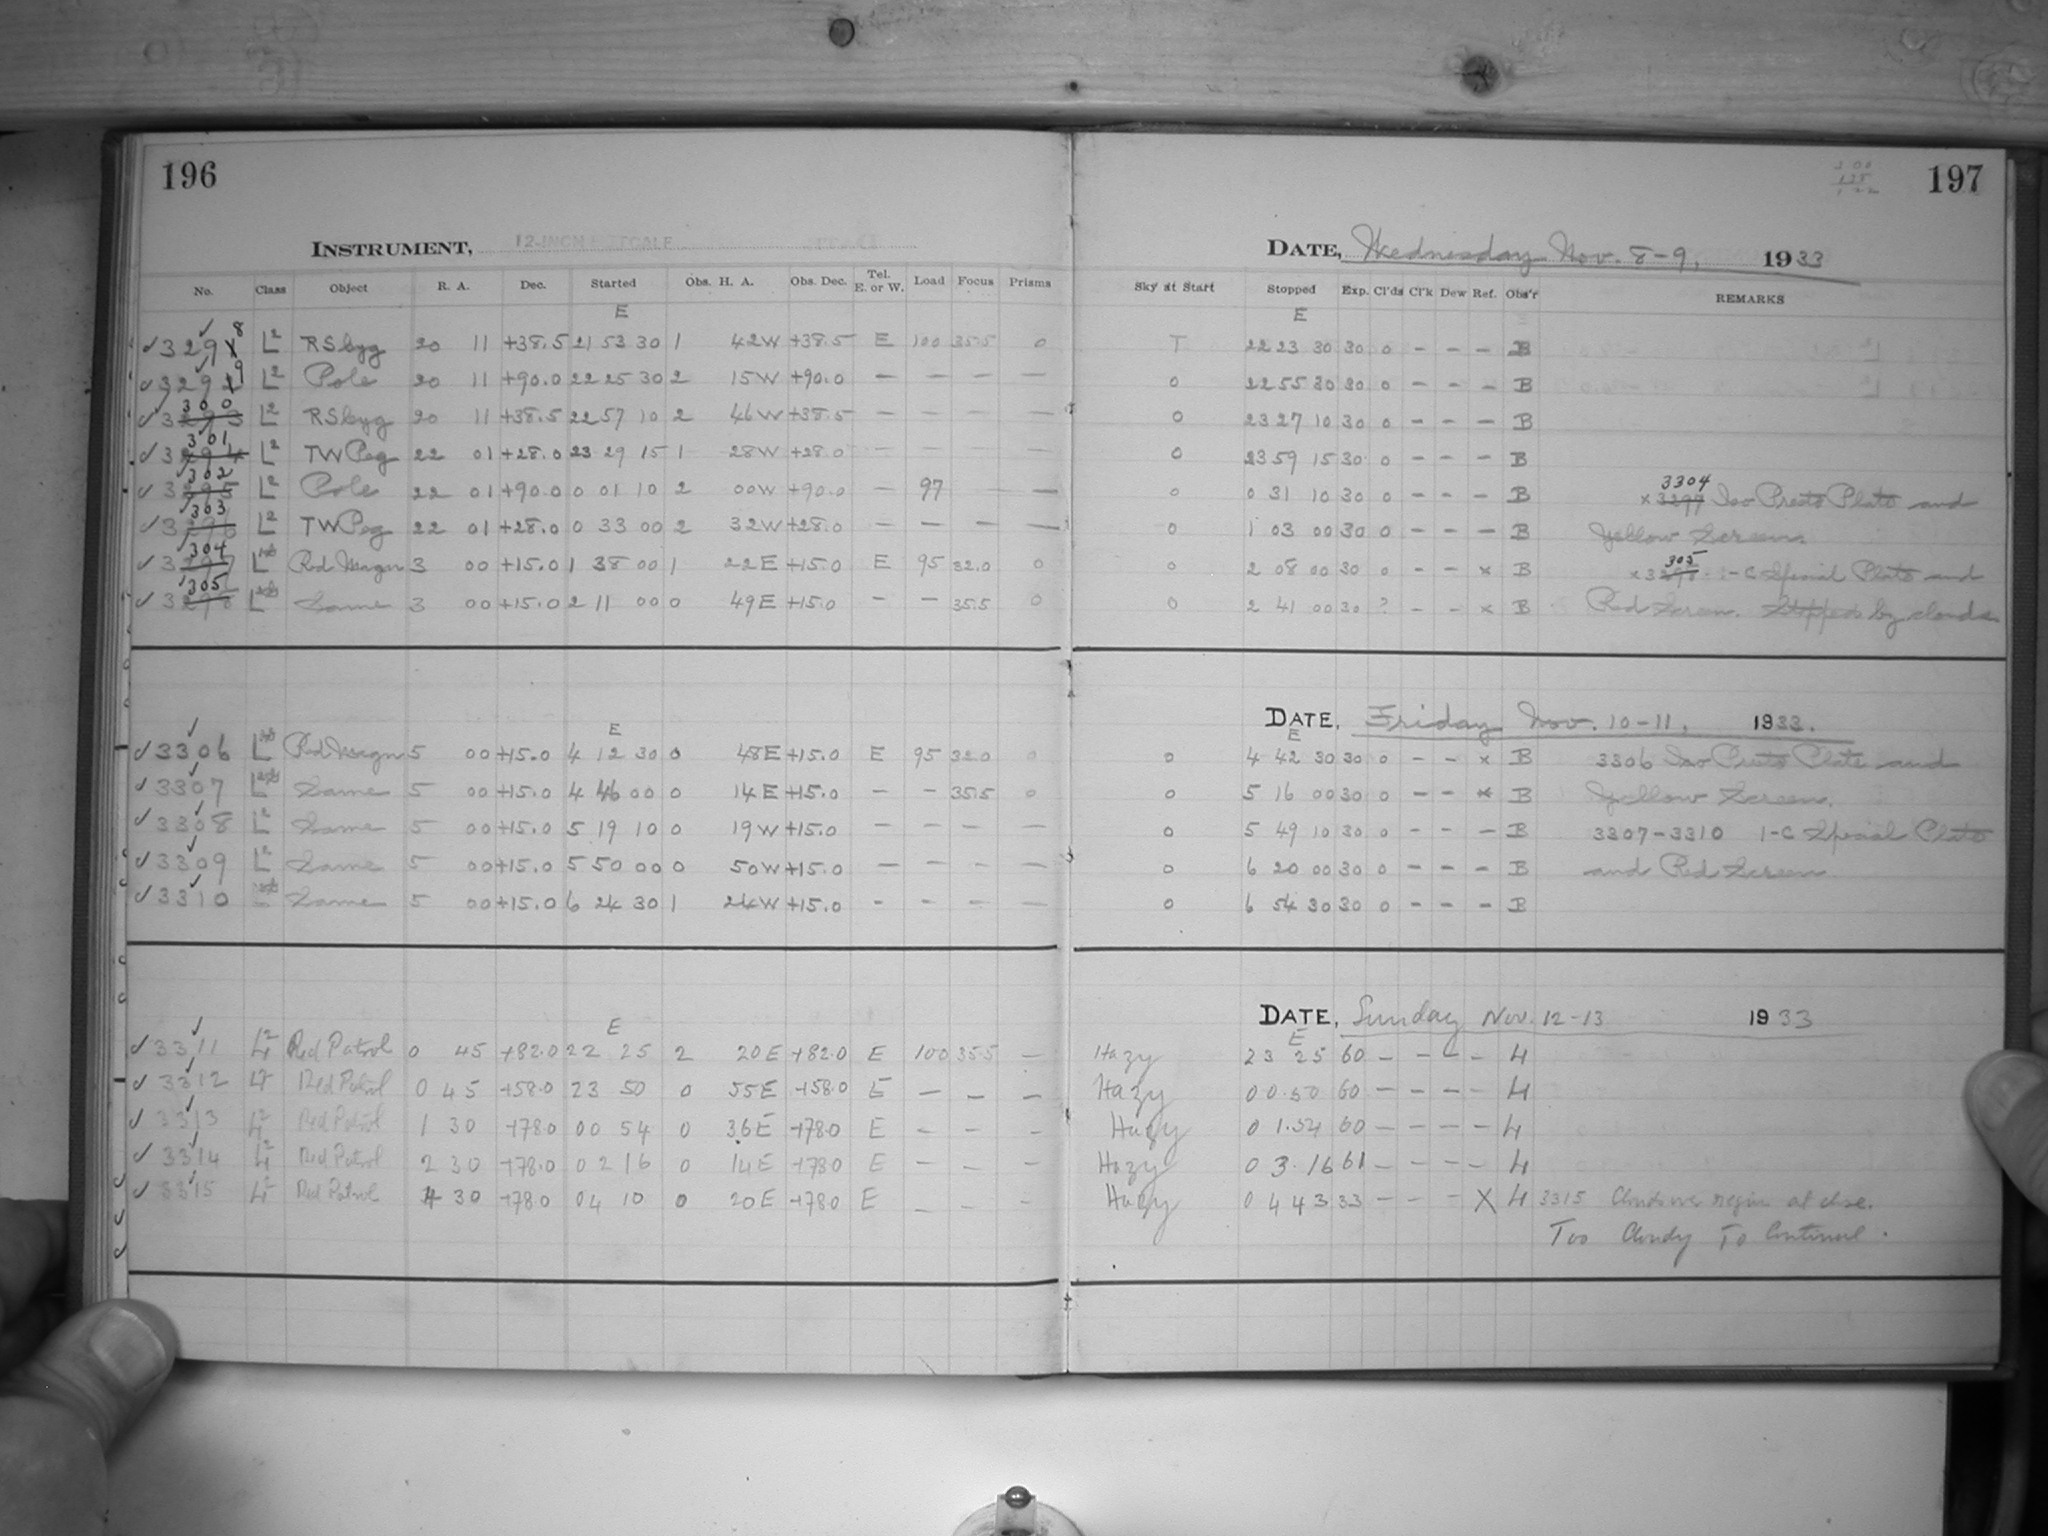 196
197
INSTRUMENT,
DATE, Wednesday Nov. 8-9, 1933
No. Class Object R. A. Dec. Started Obs. H. A. Obs. Dec. Tel. E. or W. Load Focus Prisms Sky at Start Stopped Exp. Cl'ds Cl'k Dew Ref. Obs'r REMARKS
E E
✓ 3298 L2 RS Cyg 20 11 +38.5 21 53 30 1 42W +38.5 E 100 35.5 0 T 22 23 30 30 0 - - - B
✓ 3299 L2 Pole 20 11 +90.0 22 25 30 2 15W +90.0 - - - - 0 22 55 30 30 0 - - - B
✓ 3300 L2 RS Cyg 20 11 +38.5 22 57 10 2 46W +38.5 - - - - 0 23 27 10 30 0 - - - B
✓ 3301 L2 TW Peg 22 01 +28.0 23 29 15 1 28W +28.0 - - - - 0 23 59 15 30 0 - - - B
✓ 3302 L2 Pole 22 01 +90.0 0 01 10 2 00W +90.0 - 97 - - 0 0 31 10 30 0 - - - B x 3304 Iso Presto Plate and
✓ 3303 L2 TW Peg 22 01 +28.0 0 33 00 2 32W +28.0 - - - - 0 1 03 00 30 0 - - - B Yellow Screen.
✓ 3304 L Red Magn 3 00 +15.0 1 38 00 1 22E +15.0 E 95 32.0 0 0 2 08 00 30 0 - - x B x 3305. 1-C Special Plate and
✓ 3305 L Same 3 00 +15.0 2 11 00 0 49E +15.0 - - 35.5 0 0 2 41 00 30 ? - - x B Red Screen. Stopped by clouds
DATE, Friday Nov. 10-11, 1933.
E E
✓ 3306 L Red Magn 5 00 +15.0 4 12 30 0 48E +15.0 E 95 32.0 0 0 4 42 30 30 0 - - x B 3306 Iso Presto Plate and
✓ 3307 L Same 5 00 +15.0 4 46 00 0 14E +15.0 - - 35.5 0 0 5 16 00 30 0 - - x B Yellow Screen.
✓ 3308 L2 Same 5 00 +15.0 5 19 10 0 19W +15.0 - - - - 0 5 49 10 30 0 - - - B 3307-3310 1-C Special Plate
✓ 3309 L2 Same 5 00 +15.0 5 50 00 0 50W +15.0 - - - - 0 6 20 00 30 0 - - - B and Red Screen
✓ 3310 Same 5 00 +15.0 6 24 30 1 24W +15.0 - - - - 0 6 54 30 30 0 - - - B
DATE, Sunday Nov. 12-13 1933
E E
✓ 3311 L2 Red Patrol 0 45 +82.0 22 25 2 20E +82.0 E 100 35.5 - Hazy 23 25 60 - - - - H
✓ 3312 Red Patrol 0 45 +58.0 23 50 0 55E +58.0 E - - - Hazy 0 0.50 60 - - - - H
✓ 3313 L2 Red Patrol 1 30 +78.0 00 54 0 36E +78.0 E - - - Hazy 0 1.54 60 - - - - H
✓ 3314 L2 Red Patrol 2 30 +78.0 02 16 0 14E +78.0 E - - - Hazy 0 3.16 61 - - - - H
✓ 3315 L2 Red Patrol 4 30 +78.0 04 10 0 20E +78.0 E - - - Hazy 0 4 43 33 - - - X H 3315 Clouds over region at close.
Too Cloudy To Continue.